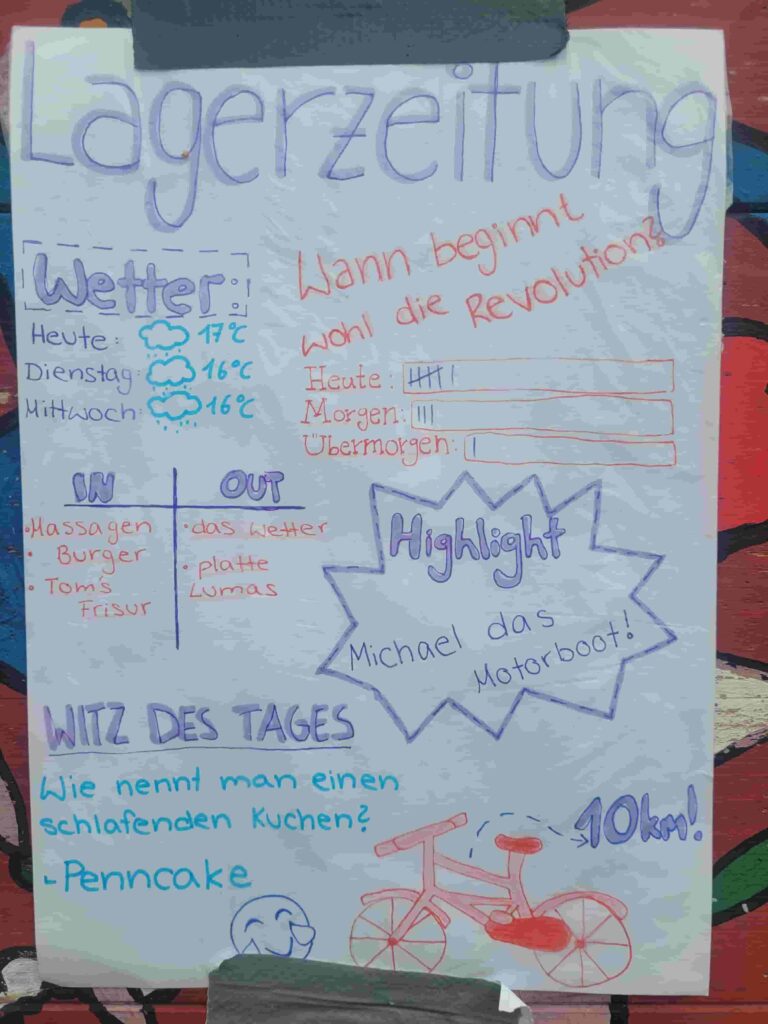 Lagerzeitung
Wetter:
Heute: 17°C
Dienstag: 16°C
Mittwoch: 16°C
Wann beginnt
wohl die Revolution?
Heute:
Morgen:
Übermorgen:
IN
• Massagen
• Burger
• Tom's
Frisur
OUT
• das Wetter
• platte
Lumas
Highlight
Michael das
Motorboot!
WITZ DES TAGES
Wie nennt man einen
schlafenden Kuchen?
- Penncake
10km!